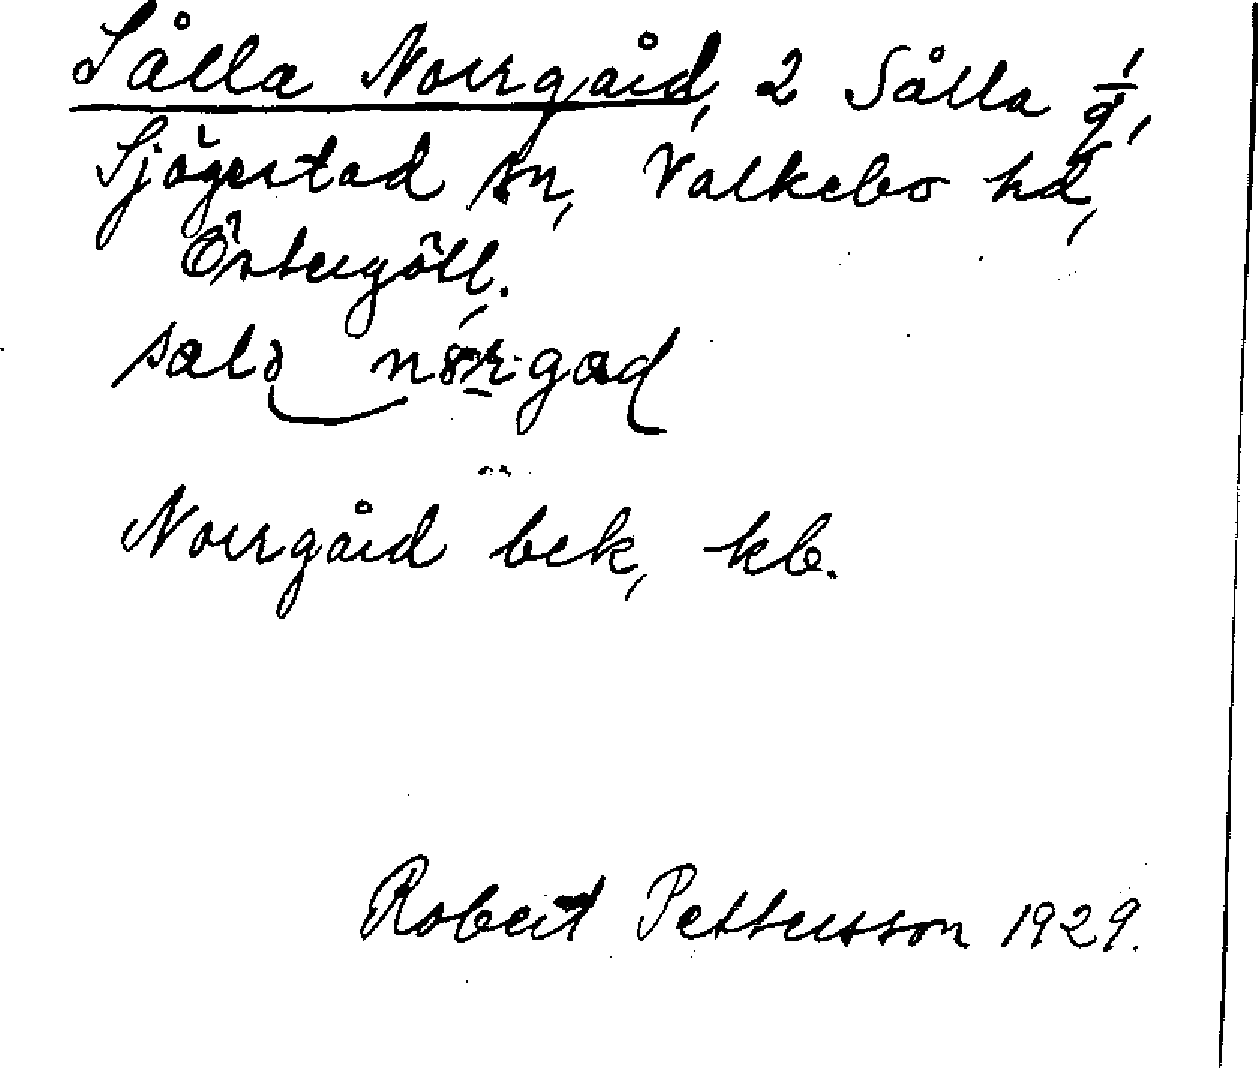 Sålla Norrgård, 2 Sålla 1/9,
Sjögestad sn, Valkebo hd,
Östergötl.
Norrgård bek, kb.
Robert Pettersson 1929.